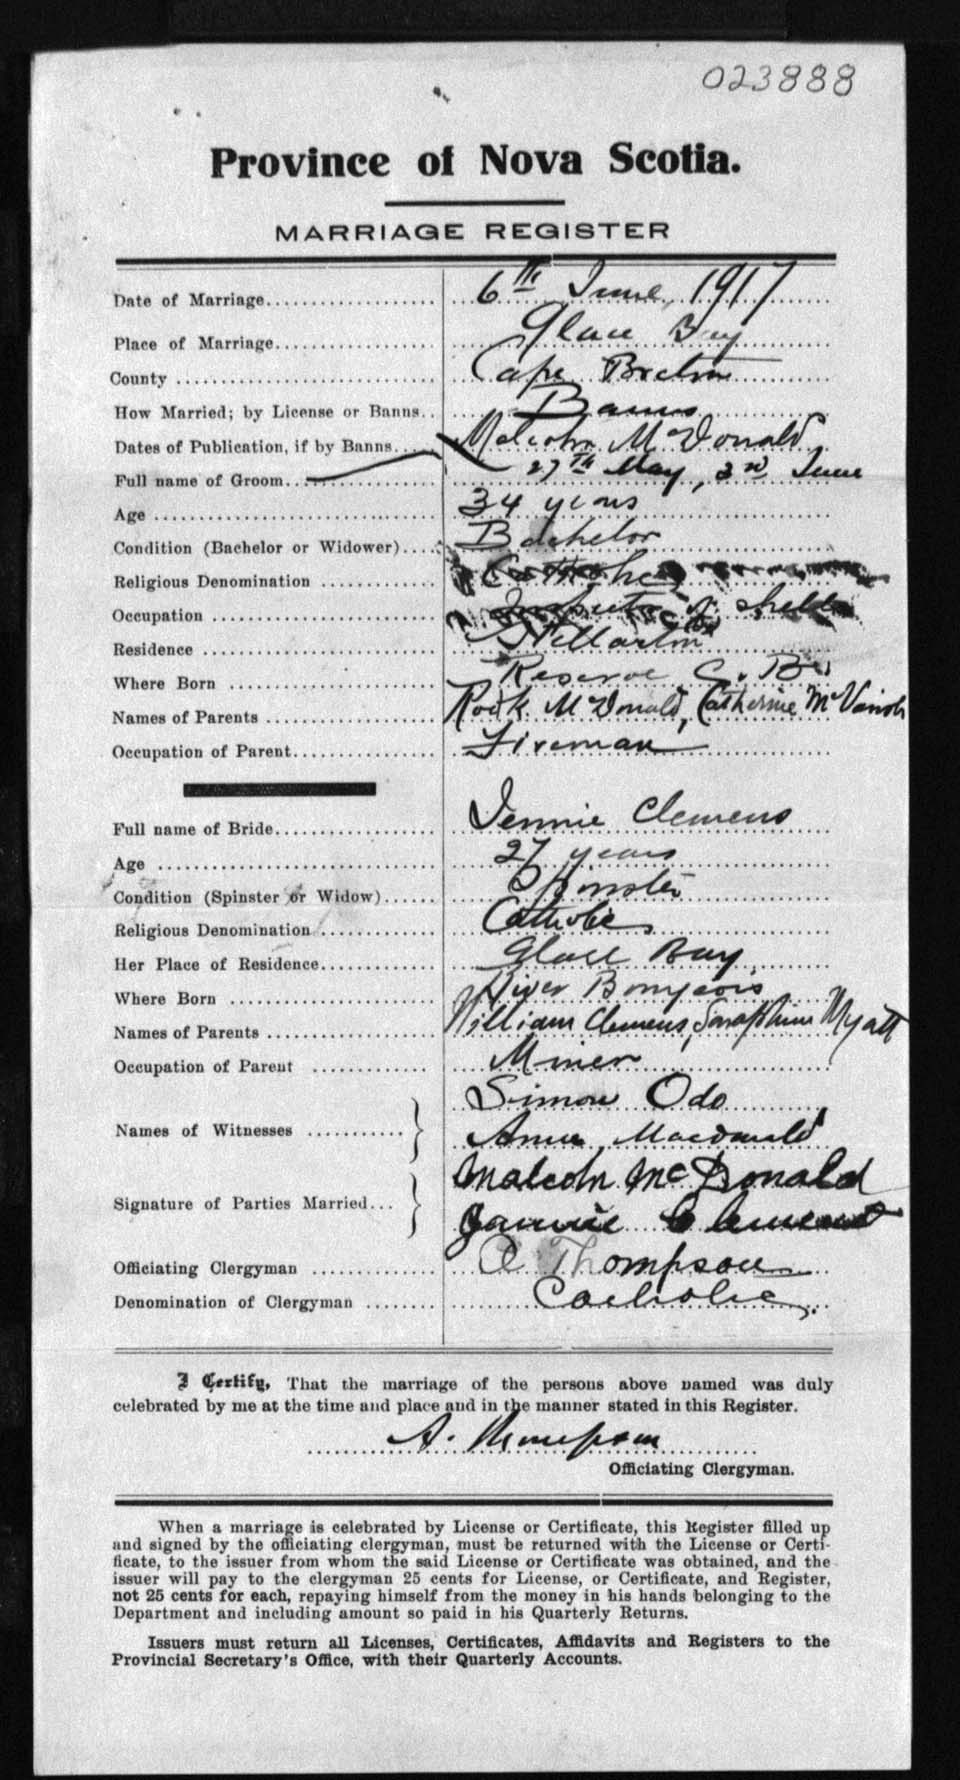 023888
Province of Nova Scotia.
MARRIAGE REGISTER
Date of Marriage 6th June, 1917
Place of Marriage Glace Bay
County Cape Breton
How Married; by License or Banns Banns
Dates of Publication, if by Banns Malcolm McDonald
Full name of Groom 27th May, 3rd June
Age 34 years
Condition (Bachelor or Widower) Bachelor
Religious Denomination Catholic
Occupation Inspector of shells
Residence Stellarton
Where Born Reserve C. B.
Names of Parents Rodk McDonald, Catherine McVarish
Occupation of Parent Fireman
Full name of Bride Jennie Clemens
Age 27 years
Condition (Spinster or Widow) Spinster
Religious Denomination Catholic
Her Place of Residence Glace Bay
Where Born River Bourgeois
Names of Parents William Clemens, Saraphine Myatt
Occupation of Parent Miner
Names of Witnesses Simon Odo
Annie Macdonald
Signature of Parties Married Malcolm McDonald
Jannie
Officiating Clergyman A Thompson
Denomination of Clergyman Catholic
I Certify, That the marriage of the persons above named was duly
celebrated by me at the time and place and in the manner stated in this Register.
A. Thompson
Officiating Clergyman.
When a marriage is celebrated by License or Certificate, this Register filled up
and signed by the officiating clergyman, must be returned with the License or Certi-
ficate, to the issuer from whom the said License or Certificate was obtained, and the
issuer will pay to the clergyman 25 cents for License, or Certificate, and Register,
not 25 cents for each, repaying himself from the money in his hands belonging to the
Department and including amount so paid in his Quarterly Returns.
Issuers must return all Licenses, Certificates, Affidavits and Registers to the
Provincial Secretary's Office, with their Quarterly Accounts.